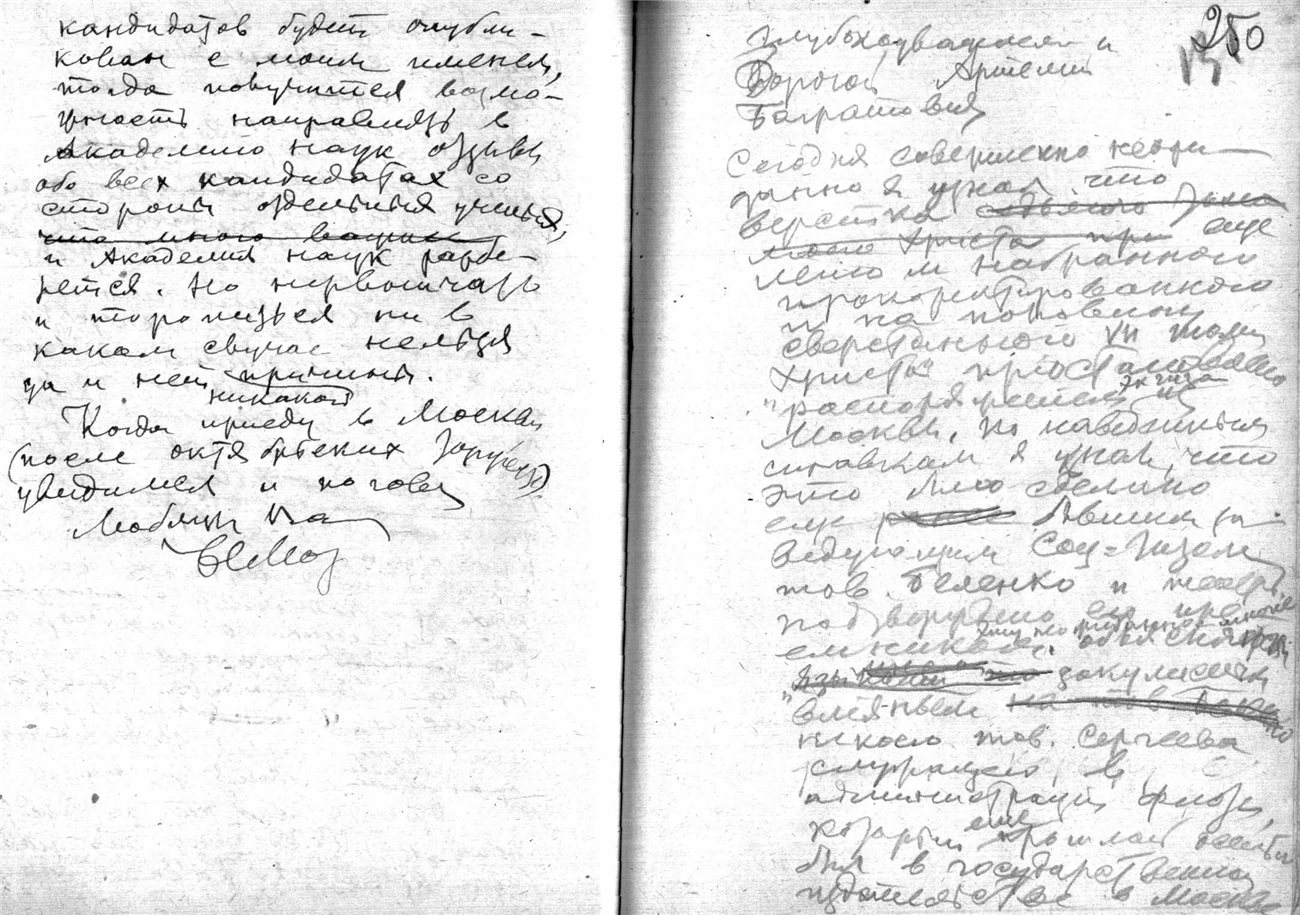 кандидатов будет опубли-
кован с моим именем,
тогда получится возмо-
жность направлять в
Академию наук отзывы
обо всех кандидатах со
стороны отдельных ученых,
что много
и Академия наук разбе-
рется. Но нервничать
и торопиться ни в
каком случае нельзя
да и нет причины.
никакой
Когда приеду в Москву
(после октябрьских
увидимся и
Любящий Вас
НМор
250
Глубокоуважаемый и
Дорогой Артемий
Багратович
Сегодня совершенно неожи-
данно я узнал что
верстка седьмого тома
моего Христа при еще
летом набранного
прокорректированного
и на половину
сверстанного VII тома
"Христа" приостановлена
распоряжением из
Москвы. По наведенным
справкам я узнал, что
это было сделано
еще бывшим за-
ведующим Соц-Гизом
тов. Беленко и теперь
подтверждено его пре-
емником.
закулисным
"влияньем на тов
некоего тов. Сергеева
служащего в
администрации
который еще прошлой
был в государственном
издательстве в Москве